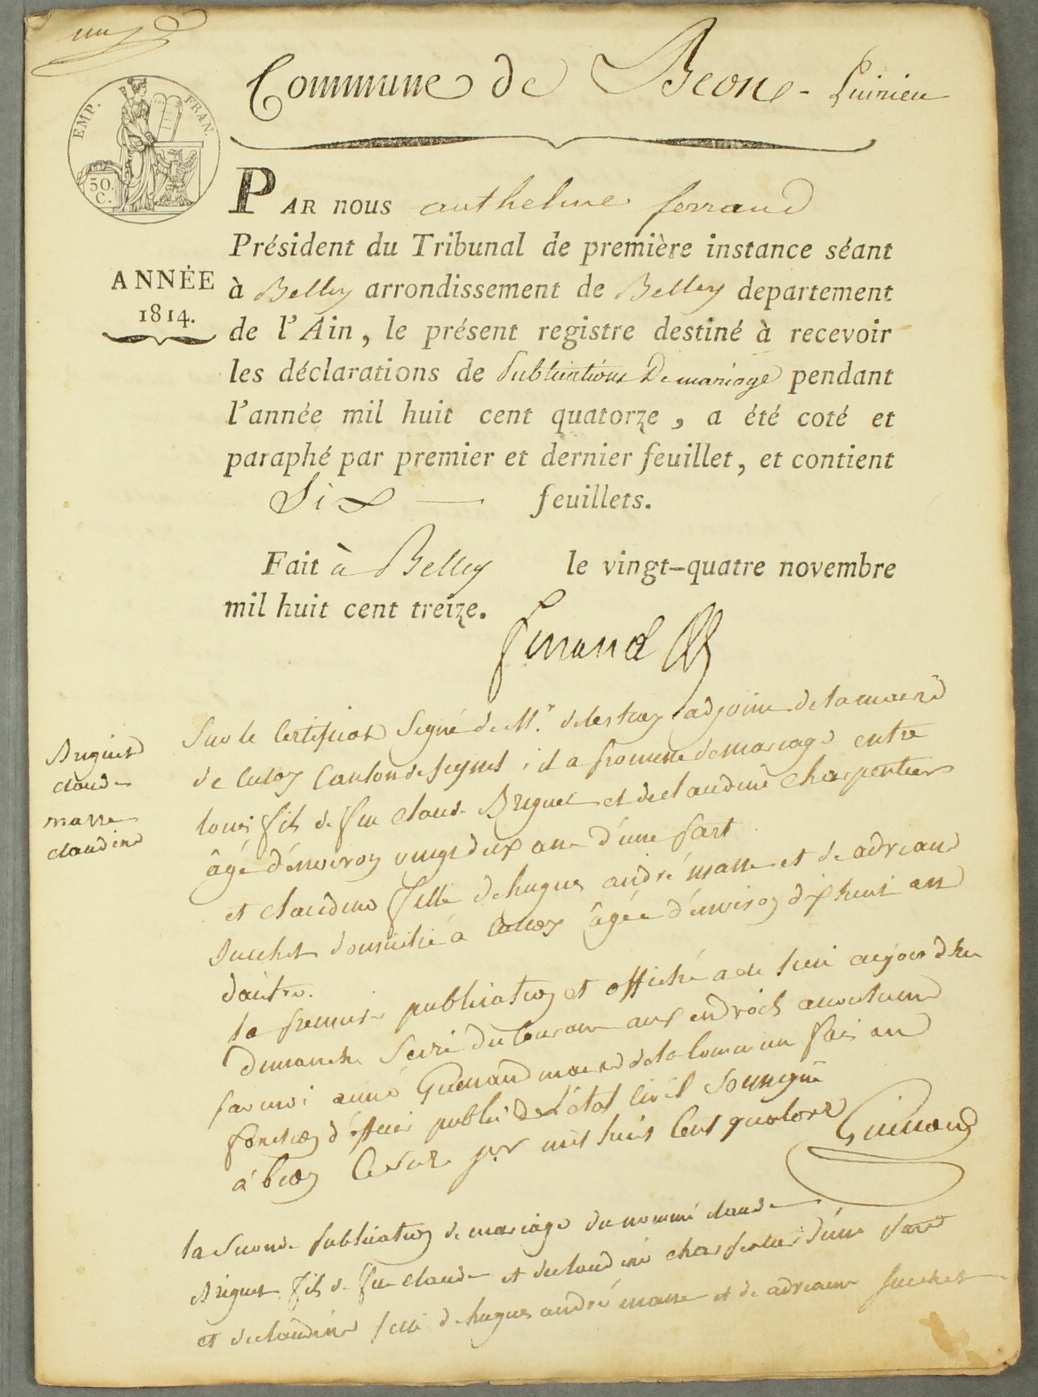 EMP. FRAN.
50. C.
Commune de Beon - Luirieu
ANNÉE
1814.
PAR nous anthelme ferrand
Président du Tribunal de première instance séant
à Belley arrondissement de Belley departement
de l'Ain, le présent registre destiné à recevoir
les déclarations de Publications De mariage pendant
l'année mil huit cent quatorze, a été coté et
paraphé par premier et dernier feuillet, et contient
Six feuillets.
Fait à Belley le vingt-quatre novembre
mil huit cent treize.
ferrand
Briguet
claude
marre
claudine
Sur le Certificat Signé de Mr. adjoint de la mairie
de culoz Canton de seyssel, il a promesse de mariage entre
louis fils de feu claude Briguet et de claudine charpentier
âgé d'environ vingt deux ans d'une part
et claudine fille de hugues andré marre et de adriane
Suchet domicilié à culoz âgée d'environ dix huit ans
d'autre.
la premiere publication et affiche a de lieu aujourd'hui
Dimanche Seize du Courant aux endroits accoutumé
par moi aimé Guinand maire de la Commune fais an
fonction d'officier public De l'état Civil Soussigné
à beon Ce Seize jer mil huit Cent quatorze Guinand
la Seconde publication de mariage du nommé claude
Briguet fils de feu claude et de claudine charpentier d'une part
et de claudine fille de hugues andré marre et de adriane suchet